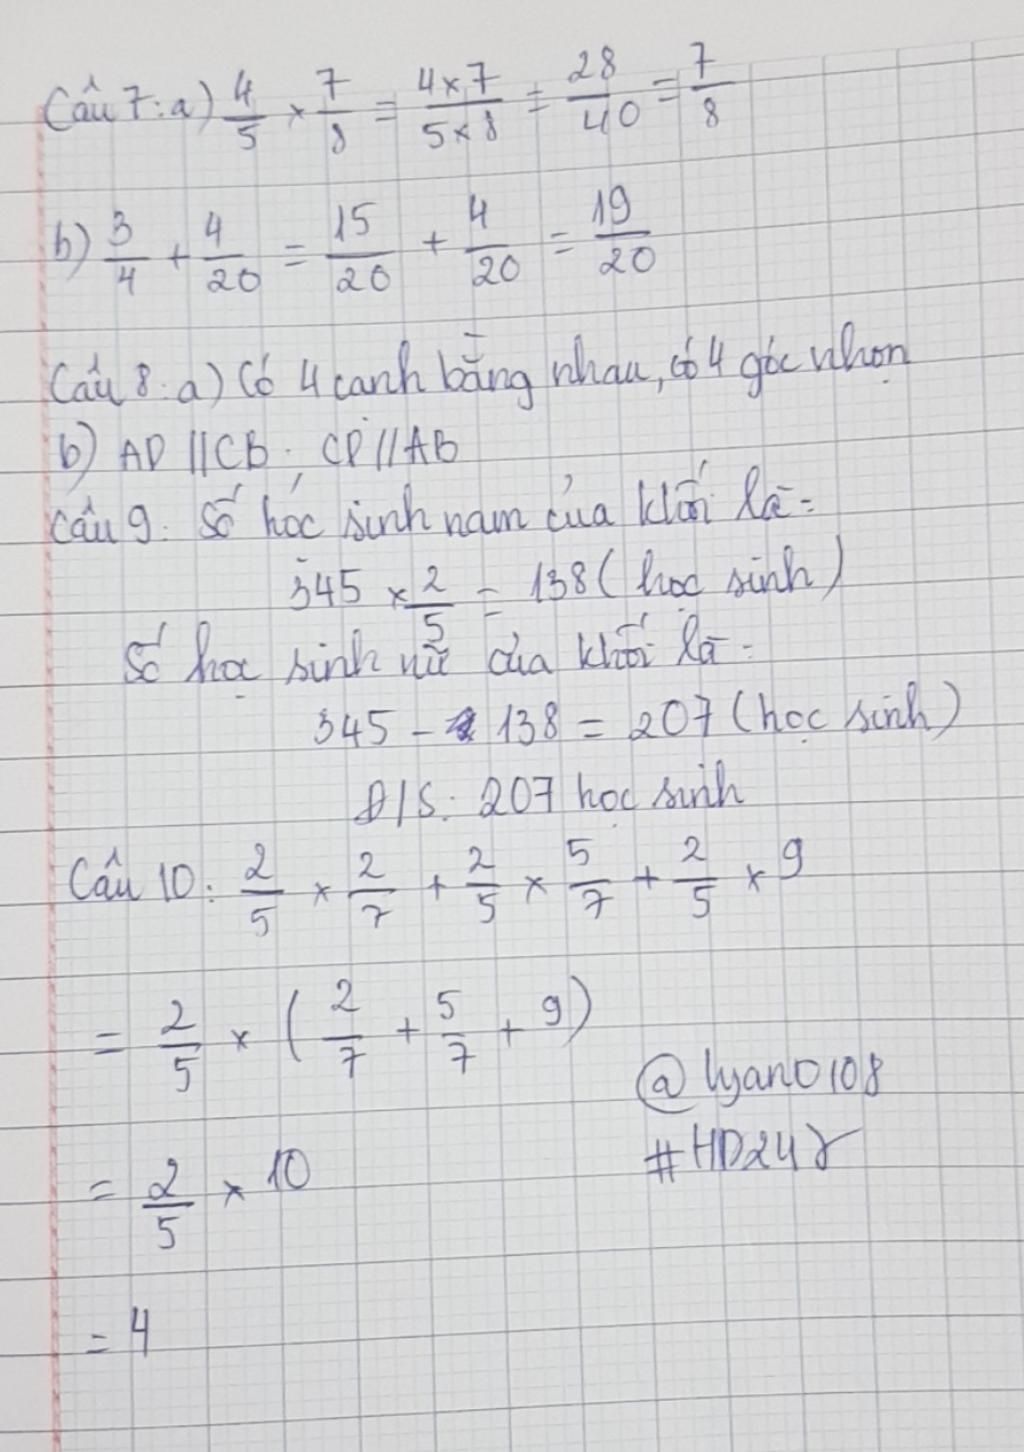 Câu 7: a) 4/5 × 7/8 = 4×7/5×8 = 28/40 = 7/8
b) 3/4 + 4/20 = 15/20 + 4/20 = 19/20
Câu 8: a) Có 4 canh bằng nhau, có 4 góc nhọn
b) AD // CB; CD // AB
Câu 9: Số học sinh nam của khối là:
345 × 2/5 = 138 (học sinh)
Số học sinh nữ của khối là:
345 - 138 = 207 (học sinh)
Đ/S: 207 học sinh
Câu 10: 2/5 × 2/7 + 2/5 × 5/7 + 2/5 × 9
= 2/5 × (2/7 + 5/7 + 9)
@lyan0108
= 2/5 × 10
#HD247
= 4